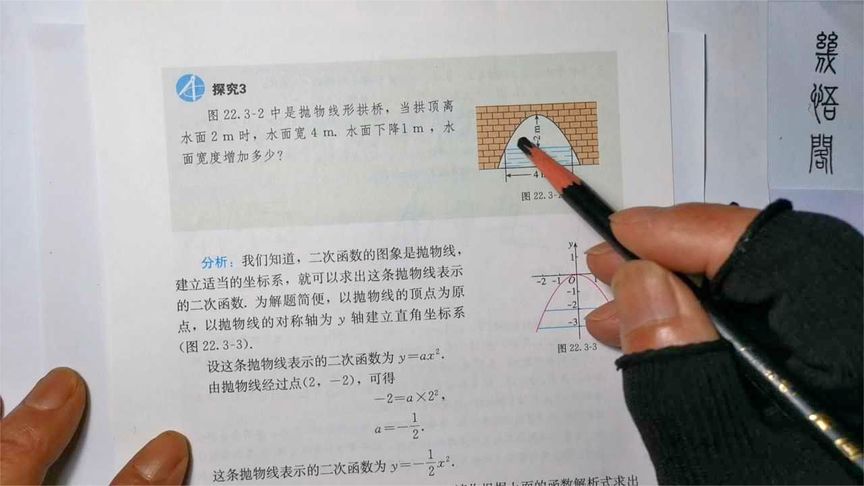 探究3
图 22.3-2 中是抛物线形拱桥，当拱顶离
水面 2 m 时，水面宽 4 m. 水面下降1 m ，水
面宽度增加多少？
2 m
4
图 22.3-
分析：我们知道，二次函数的图象是抛物线，
建立适当的坐标系，就可以求出这条抛物线表示
的二次函数. 为解题简便，以抛物线的顶点为原
点，以抛物线的对称轴为 y 轴建立直角坐标系
(图 22.3-3).
y
1
-2 -1 O 1
-1
-2
-3
图 22.3-3
设这条抛物线表示的二次函数为 y=ax².
由抛物线经过点(2，-2)，可得
-2=a×2²，
a=-1/2.
这条抛物线表示的二次函数为 y=-1/2x².
面的函数解析式求出
幾悟閣